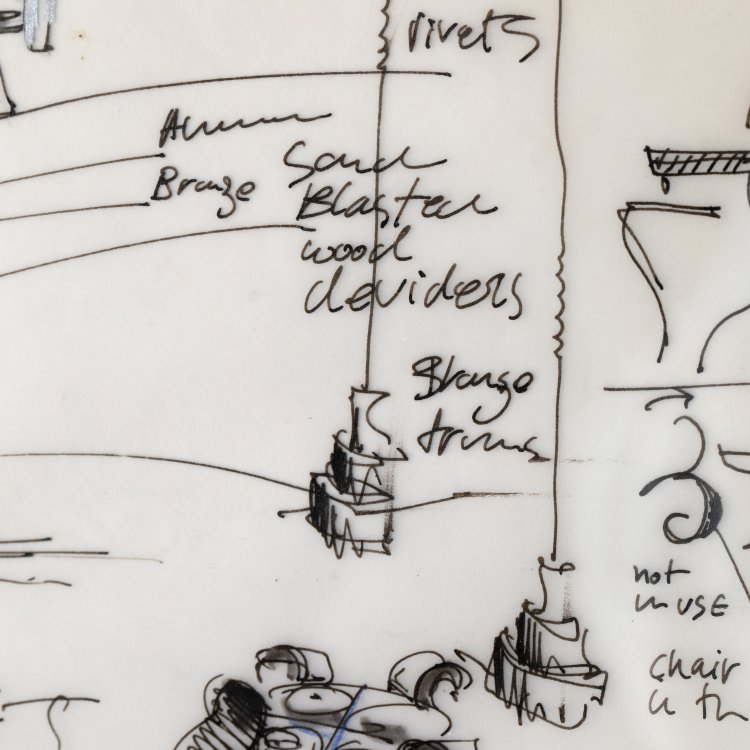 rivets
Bronze
Sand
Blasted
wood
deviders
Bronze
trims
not
in USE
chair